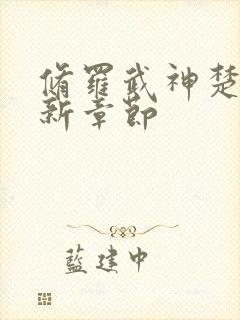 脩羅武神楚
新章節
藍建中